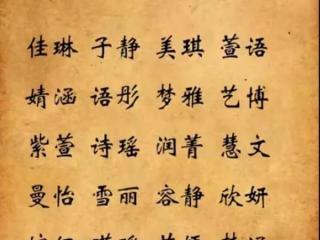 佳琳 子静 美琪 萱语
婧涵 语彤 梦雅 艺博
紫萱 诗瑶 润菁 慧文
曼怡 雪丽 容静 欣妍